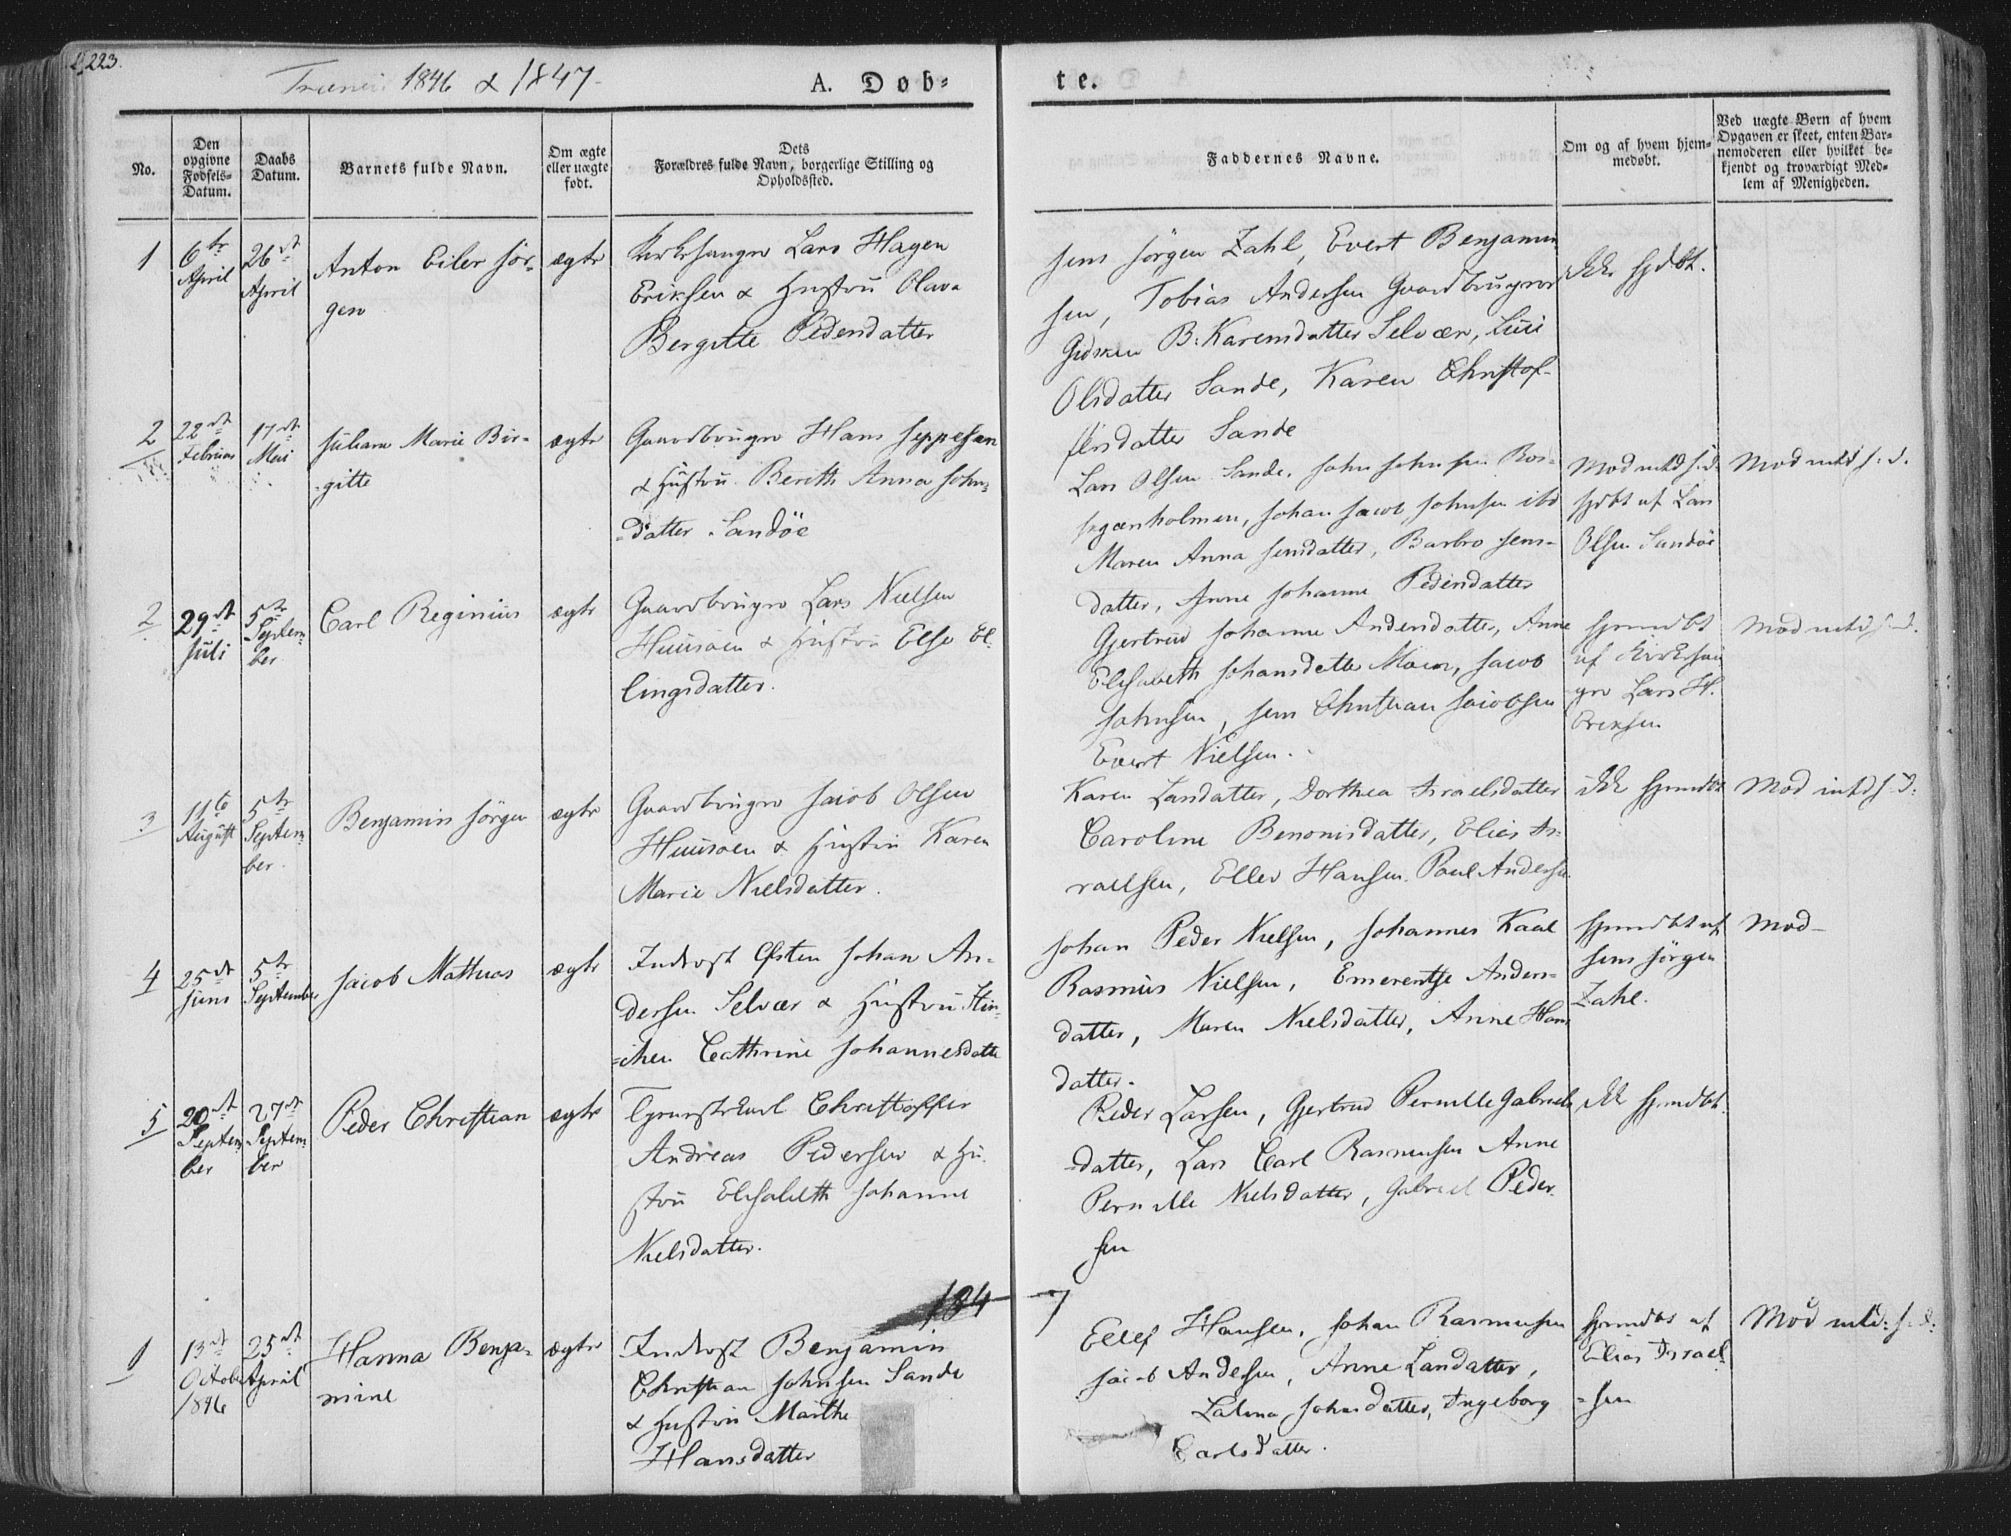 223.
Trænen 1846 & 1847.
A. Døb-
te.
No.
Den
opgivne
Fødsels-
Datum.
Daabs
Datum.
Barnets fulde Navn.
Om ægte
eller uægte
født.
Dets
Forældres fulde Navn, borgerlige Stilling og
Opholdssted.
Faddernes Navne.
Om og af hvem hjem-
medøbt.
Ved uægte Børn af hvem
Opgaven er skeet, enten Bar-
nemoderen eller hvilket be-
kjendt og troværdigt Med-
lem af Menigheden.
1
6te
April
26de
April
Anton Eiler Jør-
gen
ægte
Kirkesanger Lars Hagen
Eriksen & Hustru Olava
Bergitte Pedersdatter
Jens Jørgen Zahl, Evert Benjamin
sen, Tobias Andersen Gaardbruger
B: Karensdatter Selvær,
Olsdatter Sande, Karen Christof-
fersdatter Sande
Ikke hjdbt.
2
22de
Februar
17de
Mai
Juliana Marie Bir-
gitte
ægte
Gaardbruger Hans Jeppesen
& Hustru Berith Anna John-
datter Sandøe
Lars Olsen Sande, John Johnsen
holmen, Johan Jacob Johnsen ibd
Maren Anna Jensdatter, Barbro Jens-
datter, Anne Johanna Pedersdatter
hjdbt af Lars
Olsen Sandøe
2
29de
Juli
5te
Septem
ber
Carl Reginius
ægte
Gaardbruger Lars Nielsen
Huusøen & Hustru Else El-
lingsdatter.
Gjertrud Johanna Andersdatter, Anne
Elisabeth Johansdatter Moen, Jacob
Johnsen, Jens Christian Jacobsen
Evert Nielsen.
hjemdbt
af Kirkesan
ger Lars H.
Eriksen
3
11te
August
5te
Septem
ber.
Benjamin Jørgen
ægte
Gaardbruger Jacob Olsen
Huusøen & Hustru Karen
Marie Nielsdatter.
Karen Larsdatter, Dorthea Israelsdatter
Caroline Benonisdatter, Elias Is-
raelsen, Ellev Hansen. Paul Andersen
ikke hjemdbt
4
25de
Juni
5te
September
Jacob Mathias
ægte
Inderst Østen Johan An-
dersen Selvær & Hustru Hin-
ichen Cathrine Johannesdatter
Johan Peder Nielsen, Johannes Kaal
Rasmus Nielsen, Emerentse Anders-
datter, Maren Nielsdatter, Anne Hans
datter.
hjemdbt af
Jens Jørgen
Zahl.
Mod
5
20de
Septem
ber
27de
Septem
ber
Peder Christian
ægte
Tjenestekarl Christopher
Andreas Pedersen & Hu-
stru Elisabeth Johanna
Nielsdatter.
Peder Larsen, Gjertrud Pernille Gabriels
datter, Lars Carl Rasmussen Anne
Pernille Nielsdatter, Gabriel Peder
sen
ikke hjemdbt.
1847
1
13de
October
1846
25de
April
Hanna Benja-
mine
ægte
Inderst Benjamin
Christian Johnsen Sande
& Hustru Marthe
Hansdatter
Ellef Hansen, Johan Rasmusen
Jacob Andersen, Anne Larsdatter,
Lalina Johnsdatter, Ingeborg
Carlsdatter.
hjemdbt af
Elias Israel
-sen